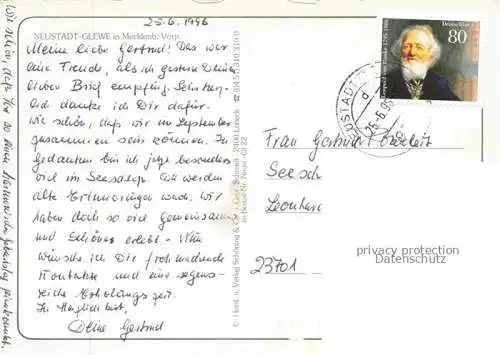 25.6.1996
NEUSTADT-GLEWE in Mecklenb.-Vorp.
Meine liebe Gertrud! Das war
eine Freude, als ich gestern Deinen
lieben Brief empfing. Sehr herz-
lich danke ich Dir dafür.
Wie schön, daß wir im September
zusammen sein können. In
Gedanken bin ich jetzt besonders
viel im Seesalop. Da werden
alte Erinnerungen wach. Wir
haben doch so viel Gemeinsames
und Schönes erlebt. - Nun
wünsche ich Dir frohmachende
Kontakte und eine segens-
reiche Erholungszeit.
In Herzlichkeit,
Deine Gertrud
Wie schön, daß Ihr so einen
© Horst u. Verlag Schöning & Co + Gebr. Schmidt · 23001 Lübeck
Deutschland
80
Leopold von Ranke 1795-1886
NEUSTADT
25.-6.96
Frau Gertrud
Seesch
Leonhar
23701
privacy protection
Datenschutz